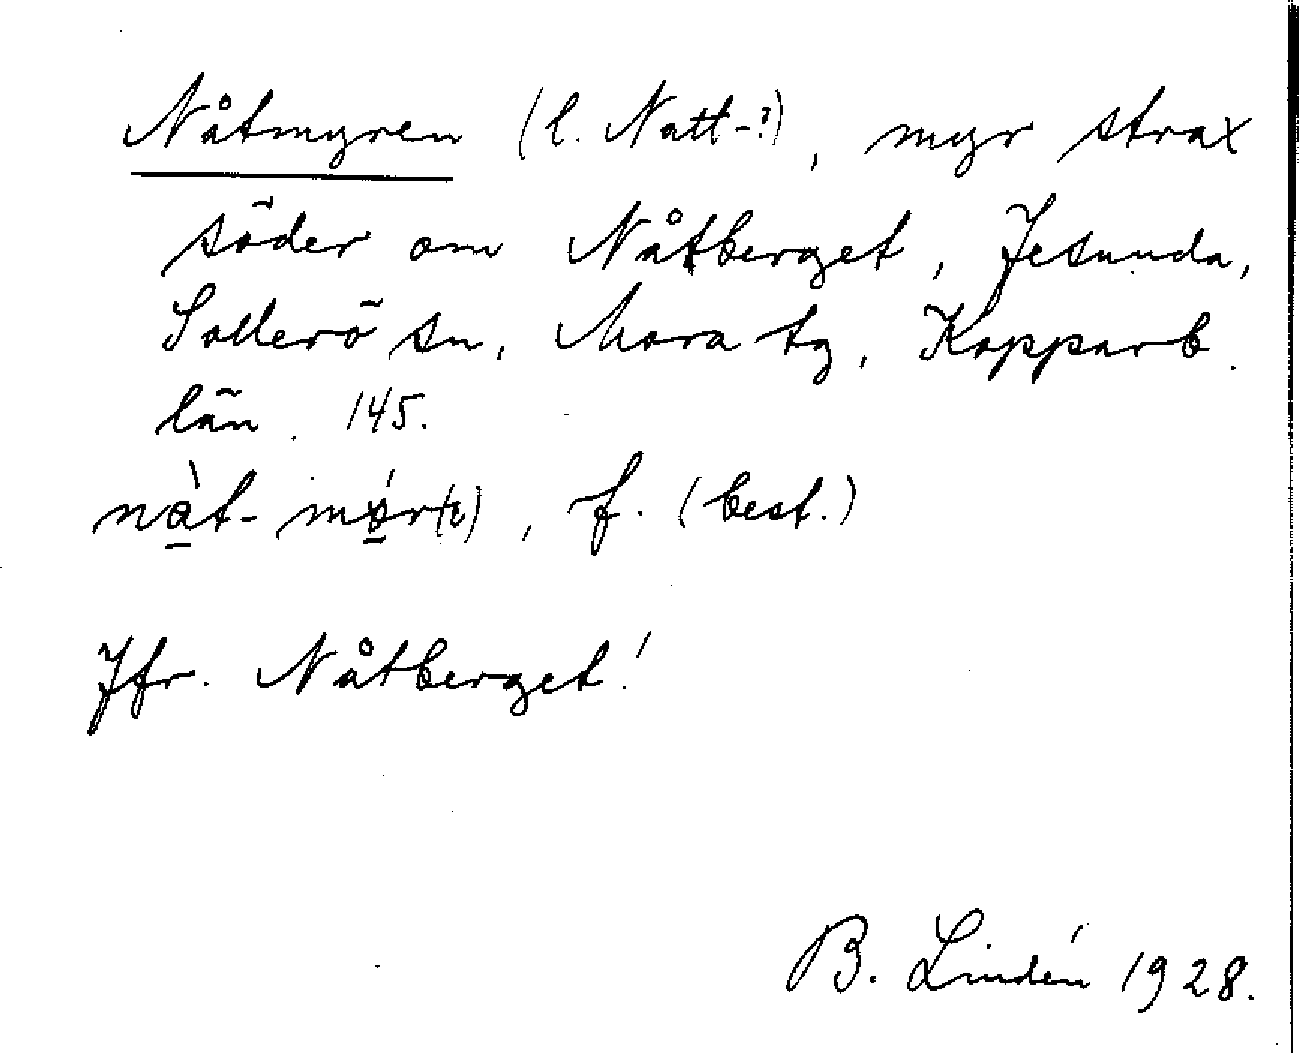 Nåtmyren (l. Natt-?), myr strax
söder om Nåtberget, Jesunda,
Sollerö sn, Mora tg, Kopparb.
län. 145.
f. (best.)
Jfr. Nåtberget!
B. Lindén 1928.